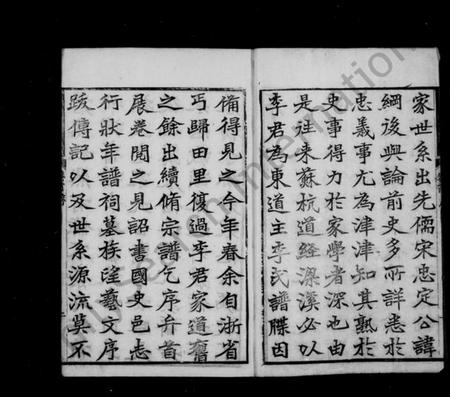 家世系出先儒宋忠定公諱
綱後與論前史多所詳悉於
忠義事尤為津津知其熟於
史事得力於家學者深也由
是往来蘇杭道經深溪必以
李君為東道主李氏譜牒因
備得見之今年春余自浙省
丐歸田里復過李君家道舊
之餘出續脩宗譜乞序弁首
展卷閱之見詔書國史邑志
行狀年譜祠墓族望藝文序
跋傳記以及世系源流莫不